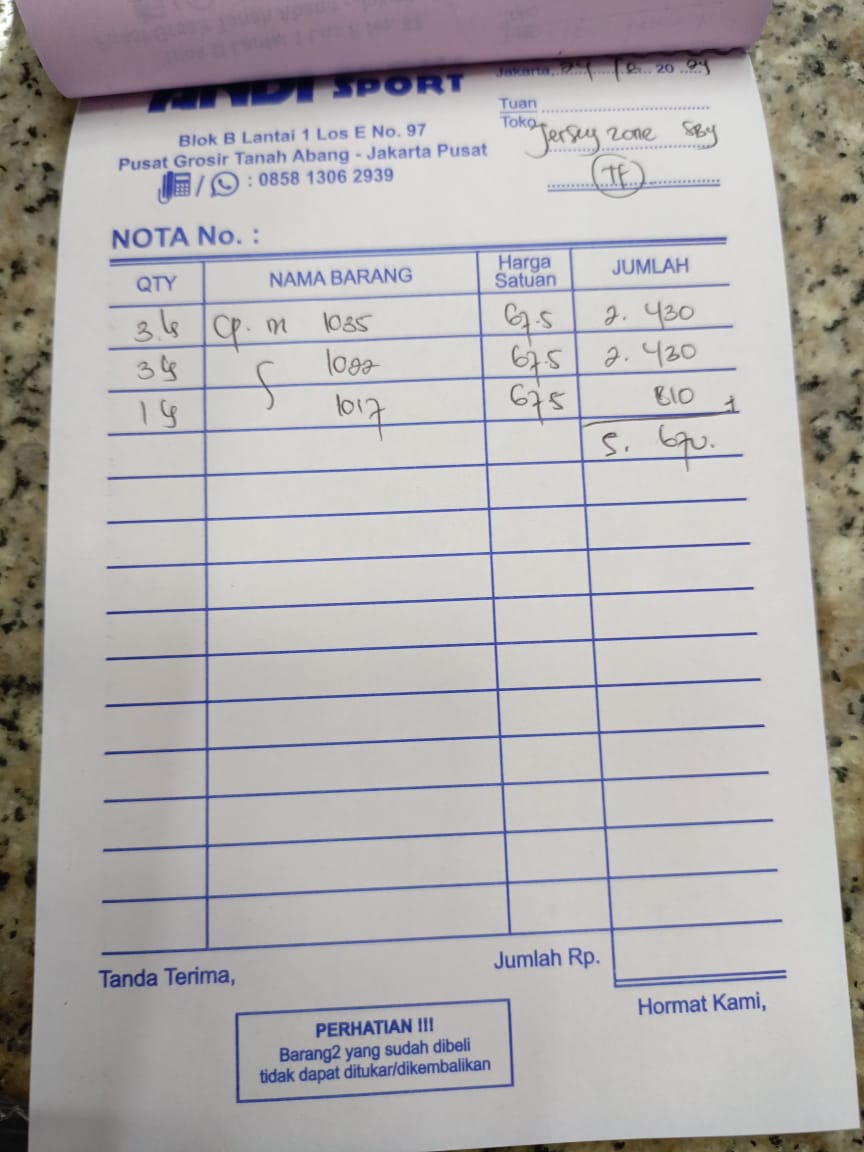 ANDI SPORT
Blok B Lantai 1 Los E No. 97
Pusat Grosir Tanah Abang - Jakarta Pusat
/ : 0858 1306 2939
Jakarta, 24 20 24
Tuan
Toko Jersey zone SBY
TF
NOTA No. :
QTY NAMA BARANG Harga Satuan JUMLAH
Cp. m 1035 67.5 2. 430
67.5 2. 430
1017 675 810
5. 670.
Jumlah Rp.
Tanda Terima,
Hormat Kami,
PERHATIAN !!!
Barang2 yang sudah dibeli
tidak dapat ditukar/dikembalikan